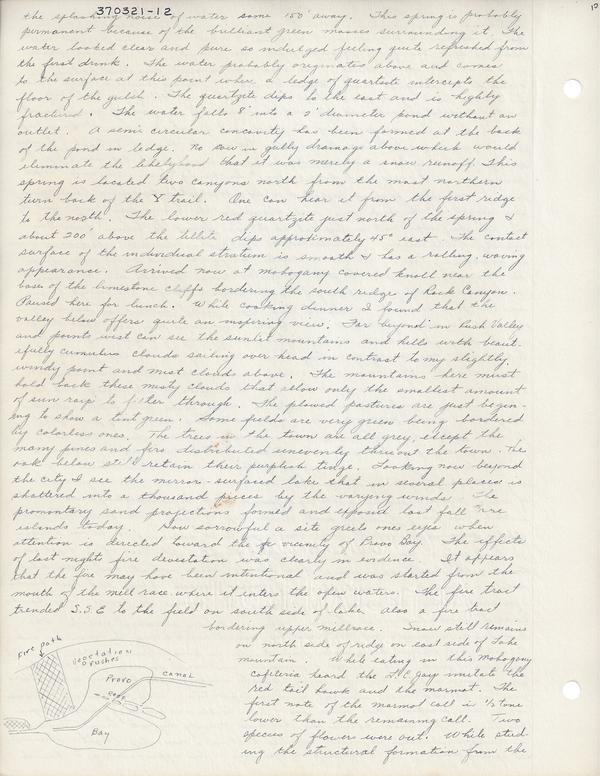 370321-12
12
the splashing noise of water some 150' away. This spring is probably
permanent because of the brilliant green mosses surrounding it. The
water looked clear and pure so indulged feeling quite refreshed from
the first drink. The water probably originates above and comes
to the surface at this point where a ledge of quartzite intercepts the
floor of the gulch. The quartzite dips to the east and is highly
fractured. The water falls 8' into a 2' diameter pond without an
outlet. A semi circular concavity has been formed at the back
of the pond in ledge. No snow in gully drainage above which would
eliminate the likelyhood that it was merely a snow runoff. This
spring is located two canyons north from the most northern
turn back of the Y trail. One can hear it from the first ridge
to the north. The lower red quartzite just north of the spring &
about 200' above the tillite dips approximately 45° east. The contact
surface of the individual stratum is smooth & has a rolling, waving
appearance. Arrived now at mahogany covered knoll near the
base of the limestone cliffs bordering the south ridge of Rock Canyon.
Paused here for lunch. While cooking dinner I found that the
valley below offers quite an inspiring view. Far beyond in Rush Valley
and points west can see the sunlit mountains and hills with beaut-
ifully cumulus clouds sailing over head in contrast to my slightly
windy point and mist clouds above. The mountains here must
hold back these misty clouds that allow only the smallest amount
of sun rays to filter through. The plowed pastures are just begin-
ing to show a tint green. Some fields are very green being bordered
by colorless ones. The trees in the town are all grey, except the
many pines and firs distributed unevenly thruout the town. The
oak below still retain their purplish tinge. Looking now beyond
the city I see the mirror-surfaced lake that in several places is
shattered into a thousand pieces by the varying winds. The
promontary sand projections formed and exposed last fall are
islands today. How sorrowful a site greets ones eyes when
attention is directed toward the vicinity of Provo Bay. The effects
of last nights fire devastation was clearly in evidence. It appears
that the fire may have been intentional and was started from the
mouth of the mill race where it enters the open waters. The fire trail
trended S.S.E to the field on south side of lake. Also a fire trail
bordering upper millrace. Snow still remains
on north side of ridge on east side of Lake
mountain. While eating in this Mahogany
cafeteria heard the L.C. Jay imitate the
red tail hawk and the marmot. The
first note of the marmot call is ½ tone
lower than the remaining call. Two
species of flowers were out. While stud-
ing the structural formation from the
Fire path
Vegetation
& rushes
Provo
canal
Bay